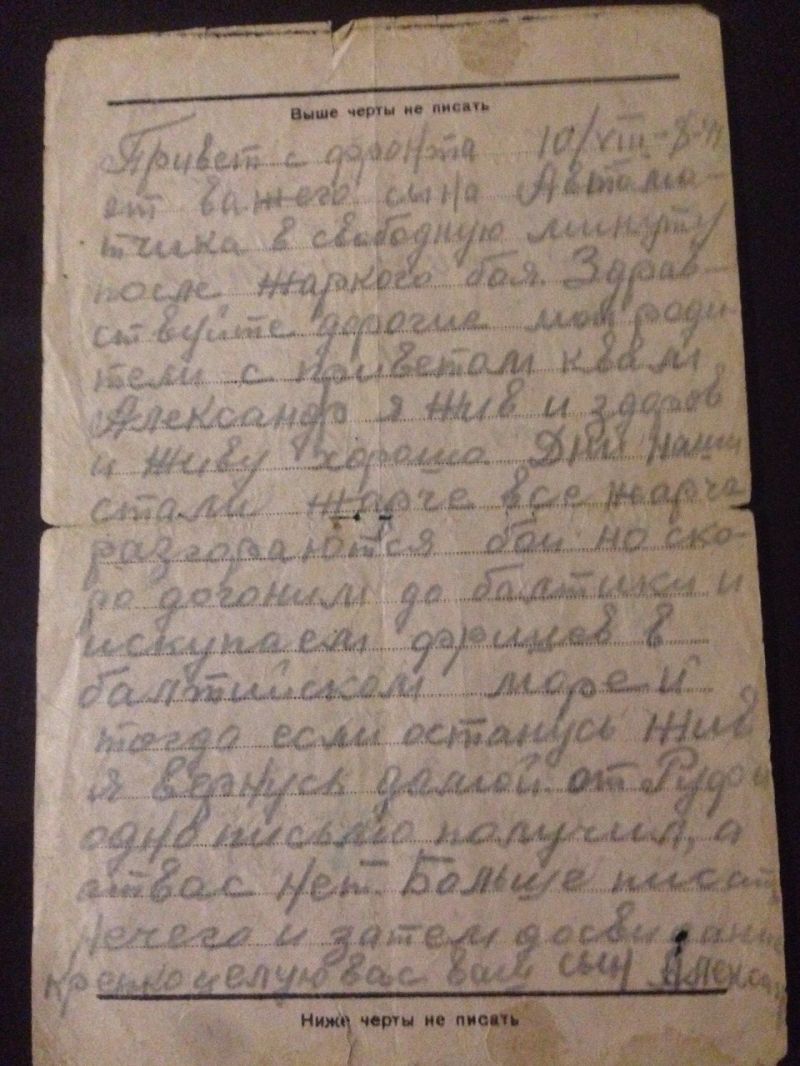 Выше черты не писать
Привет с фронта 10/VIII-
от вашего сына Автома-
тчика в свободную минуту
после жаркого боя. Здрав-
ствуйте дорогие мои роди-
тели с приветом к вам
Александр я жив и здоров
и живу хорошо Дни наши
стали жарче все жарче
разгораются бои но ско-
ро догоним до балтики и
искупаем фрицов в
балтийском море и
тогда если останусь жив
я вернусь дамой. от
одно письмо получил, а
отвас нет. Больше писать
Нечего и затем досвидание
крепко целую вас ваш сын Александр
Ниже черты не писать